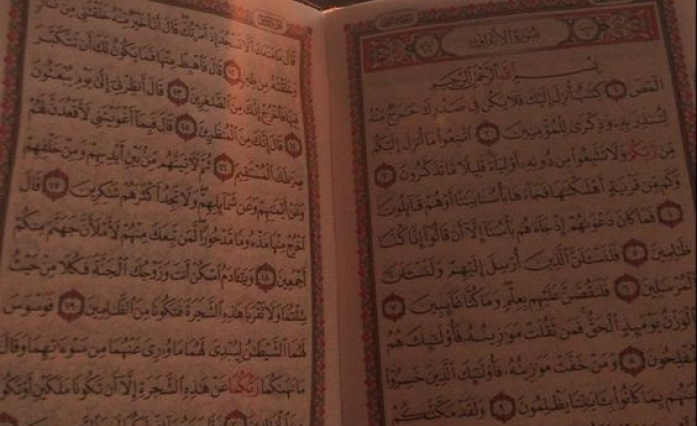 سورة الأعراف
بسم الله الرحمن الرحيم
الٓمٓصٓ ١ كتٰب أنزل إليك فلا يكن في صدرك حرج منه
لتنذر به وذكرى للمؤمنين ٢ اتبعوا ما أنزل إليكم
من ربكم ولا تتبعوا من دونه أولياء قليلا ما تذكرون ٣
وكم من قرية أهلكنٰها فجاءها بأسنا بيٰتا أو هم قائلون
٤ فما كان دعوىٰهم إذ جاءهم بأسنا إلا أن قالوا إنا كنا
ظٰلمين ٥ فلنسـٔلن الذين أرسل إليهم ولنسـٔلن
المرسلين ٦ فلنقصن عليهم بعلم وما كنا غائبين ٧
والوزن يومئذ الحق فمن ثقلت موٰزينه فأولٰئك هم
المفلحون ٨ ومن خفت موٰزينه فأولٰئك الذين خسروا
أنفسهم بما كانوا بـٔايٰتنا يظلمون ٩ ولقد مكنٰكم
قال ما منعك ألا تسجد إذ أمرتك قال أنا خير منه خلقتني من نار
وخلقته من طين ١٢ قال فاهبط منها فما يكون لك أن تتكبر
فيها فاخرج إنك من الصٰغرين ١٣ قال أنظرني إلى يوم يبعثون
١٤ قال إنك من المنظرين ١٥ قال فبما أغويتني لأقعدن لهم
صرٰطك المستقيم ١٦ ثم لـٔاتينهم من بين أيديهم ومن خلفهم
وعن أيمٰنهم وعن شمائلهم ولا تجد أكثرهم شٰكرين ١٧ قال
اخرج منها مذءوما مدحورا لمن تبعك منهم لأملأن جهنم منكم
أجمعين ١٨ ويٰـٔادم اسكن أنت وزوجك الجنة فكلا من حيث
شئتما ولا تقربا هٰذه الشجرة فتكونا من الظٰلمين ١٩ فوسوس
لهما الشيطٰن ليبدي لهما ما وۥري عنهما من سوءٰتهما وقال
ما نهىٰكما ربكما عن هٰذه الشجرة إلا أن تكونا ملكين أو تكونا